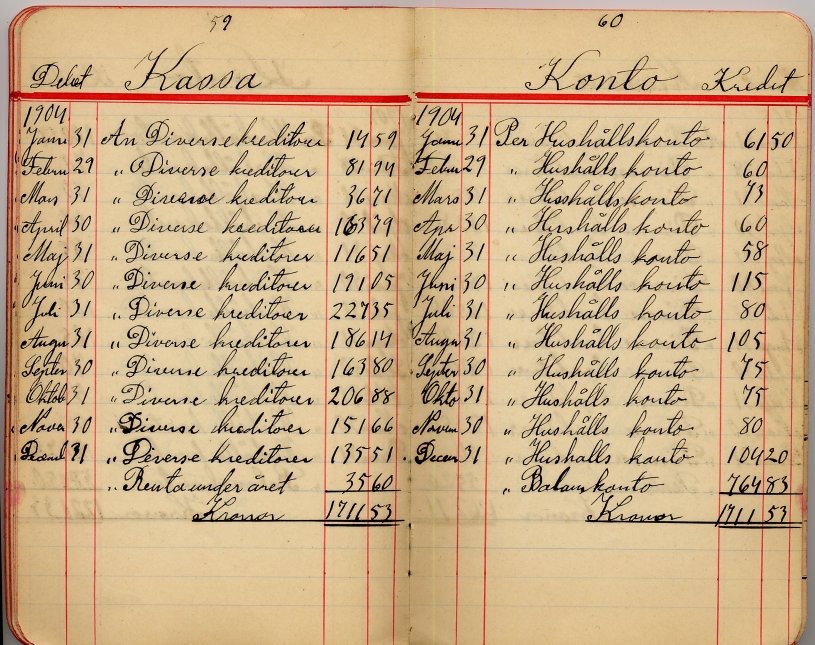 59
Debet Kassa
1904
Janu 31 An Diverse kreditorer 14 59
Febru 29 " Diverse kreditorer 81 94
Mars 31 " Diverse kreditorer 36 71
April 30 " Diverse kreditorer 163 79
Maj 31 " Diverse kreditorer 116 51
Juni 30 " Diverse kreditorer 191 05
Juli 31 " Diverse kreditorer 227 35
Augu 31 " Diverse kreditorer 186 14
Septer 30 " Diverse kreditorer 163 80
Oktob 31 " Diverse kreditorer 206 88
Novem 30 " Diverse kreditorer 151 66
Decemb 31 " Diverse kreditorer 135 51
" Renta under året 35 60
Kronor 1711 53
60
Konto Kredit
1904
Janu 31 Per Hushållskonto 61 50
Febru 29 " Hushålls konto 60
Mars 31 " Hushållskonto 73
Apr 30 " Hushålls konto 60
Maj 31 " Hushålls konto 58
Juni 30 " Hushålls konto 115
Juli 31 " Hushålls konto 80
Augu 31 " Hushålls konto 105
Septer 30 " Hushålls konto 75
Okto 31 " Hushålls konto 75
Novem 30 " Hushålls konto 80
Decem 31 " Hushålls konto 104 20
" Balans konto 764 83
Kronor 1711 53